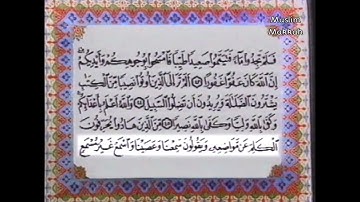 فَلَمْ تَجِدُوا مَاءً فَتَيَمَّمُوا صَعِيدًا طَيِّبًا فَامْسَحُوا بِوُجُوهِكُمْ وَأَيْدِيكُمْ
إِنَّ اللَّهَ كَانَ عَفُوًّا غَفُورًا ۝ أَلَمْ تَرَ إِلَى الَّذِينَ أُوتُوا نَصِيبًا مِنَ الْكِتَٰبِ
يَشْتَرُونَ الضَّلَٰلَةَ وَيُرِيدُونَ أَنْ تَضِلُّوا السَّبِيلَ ۝ وَاللَّهُ أَعْلَمُ بِأَعْدَائِكُمْ
وَكَفَىٰ بِاللَّهِ وَلِيًّا وَكَفَىٰ بِاللَّهِ نَصِيرًا ۝ مِنَ الَّذِينَ هَادُوا يُحَرِّفُونَ
الْكَلِمَ عَنْ مَوَاضِعِهِ وَيَقُولُونَ سَمِعْنَا وَعَصَيْنَا وَاسْمَعْ غَيْرَ مُسْمَعٍ